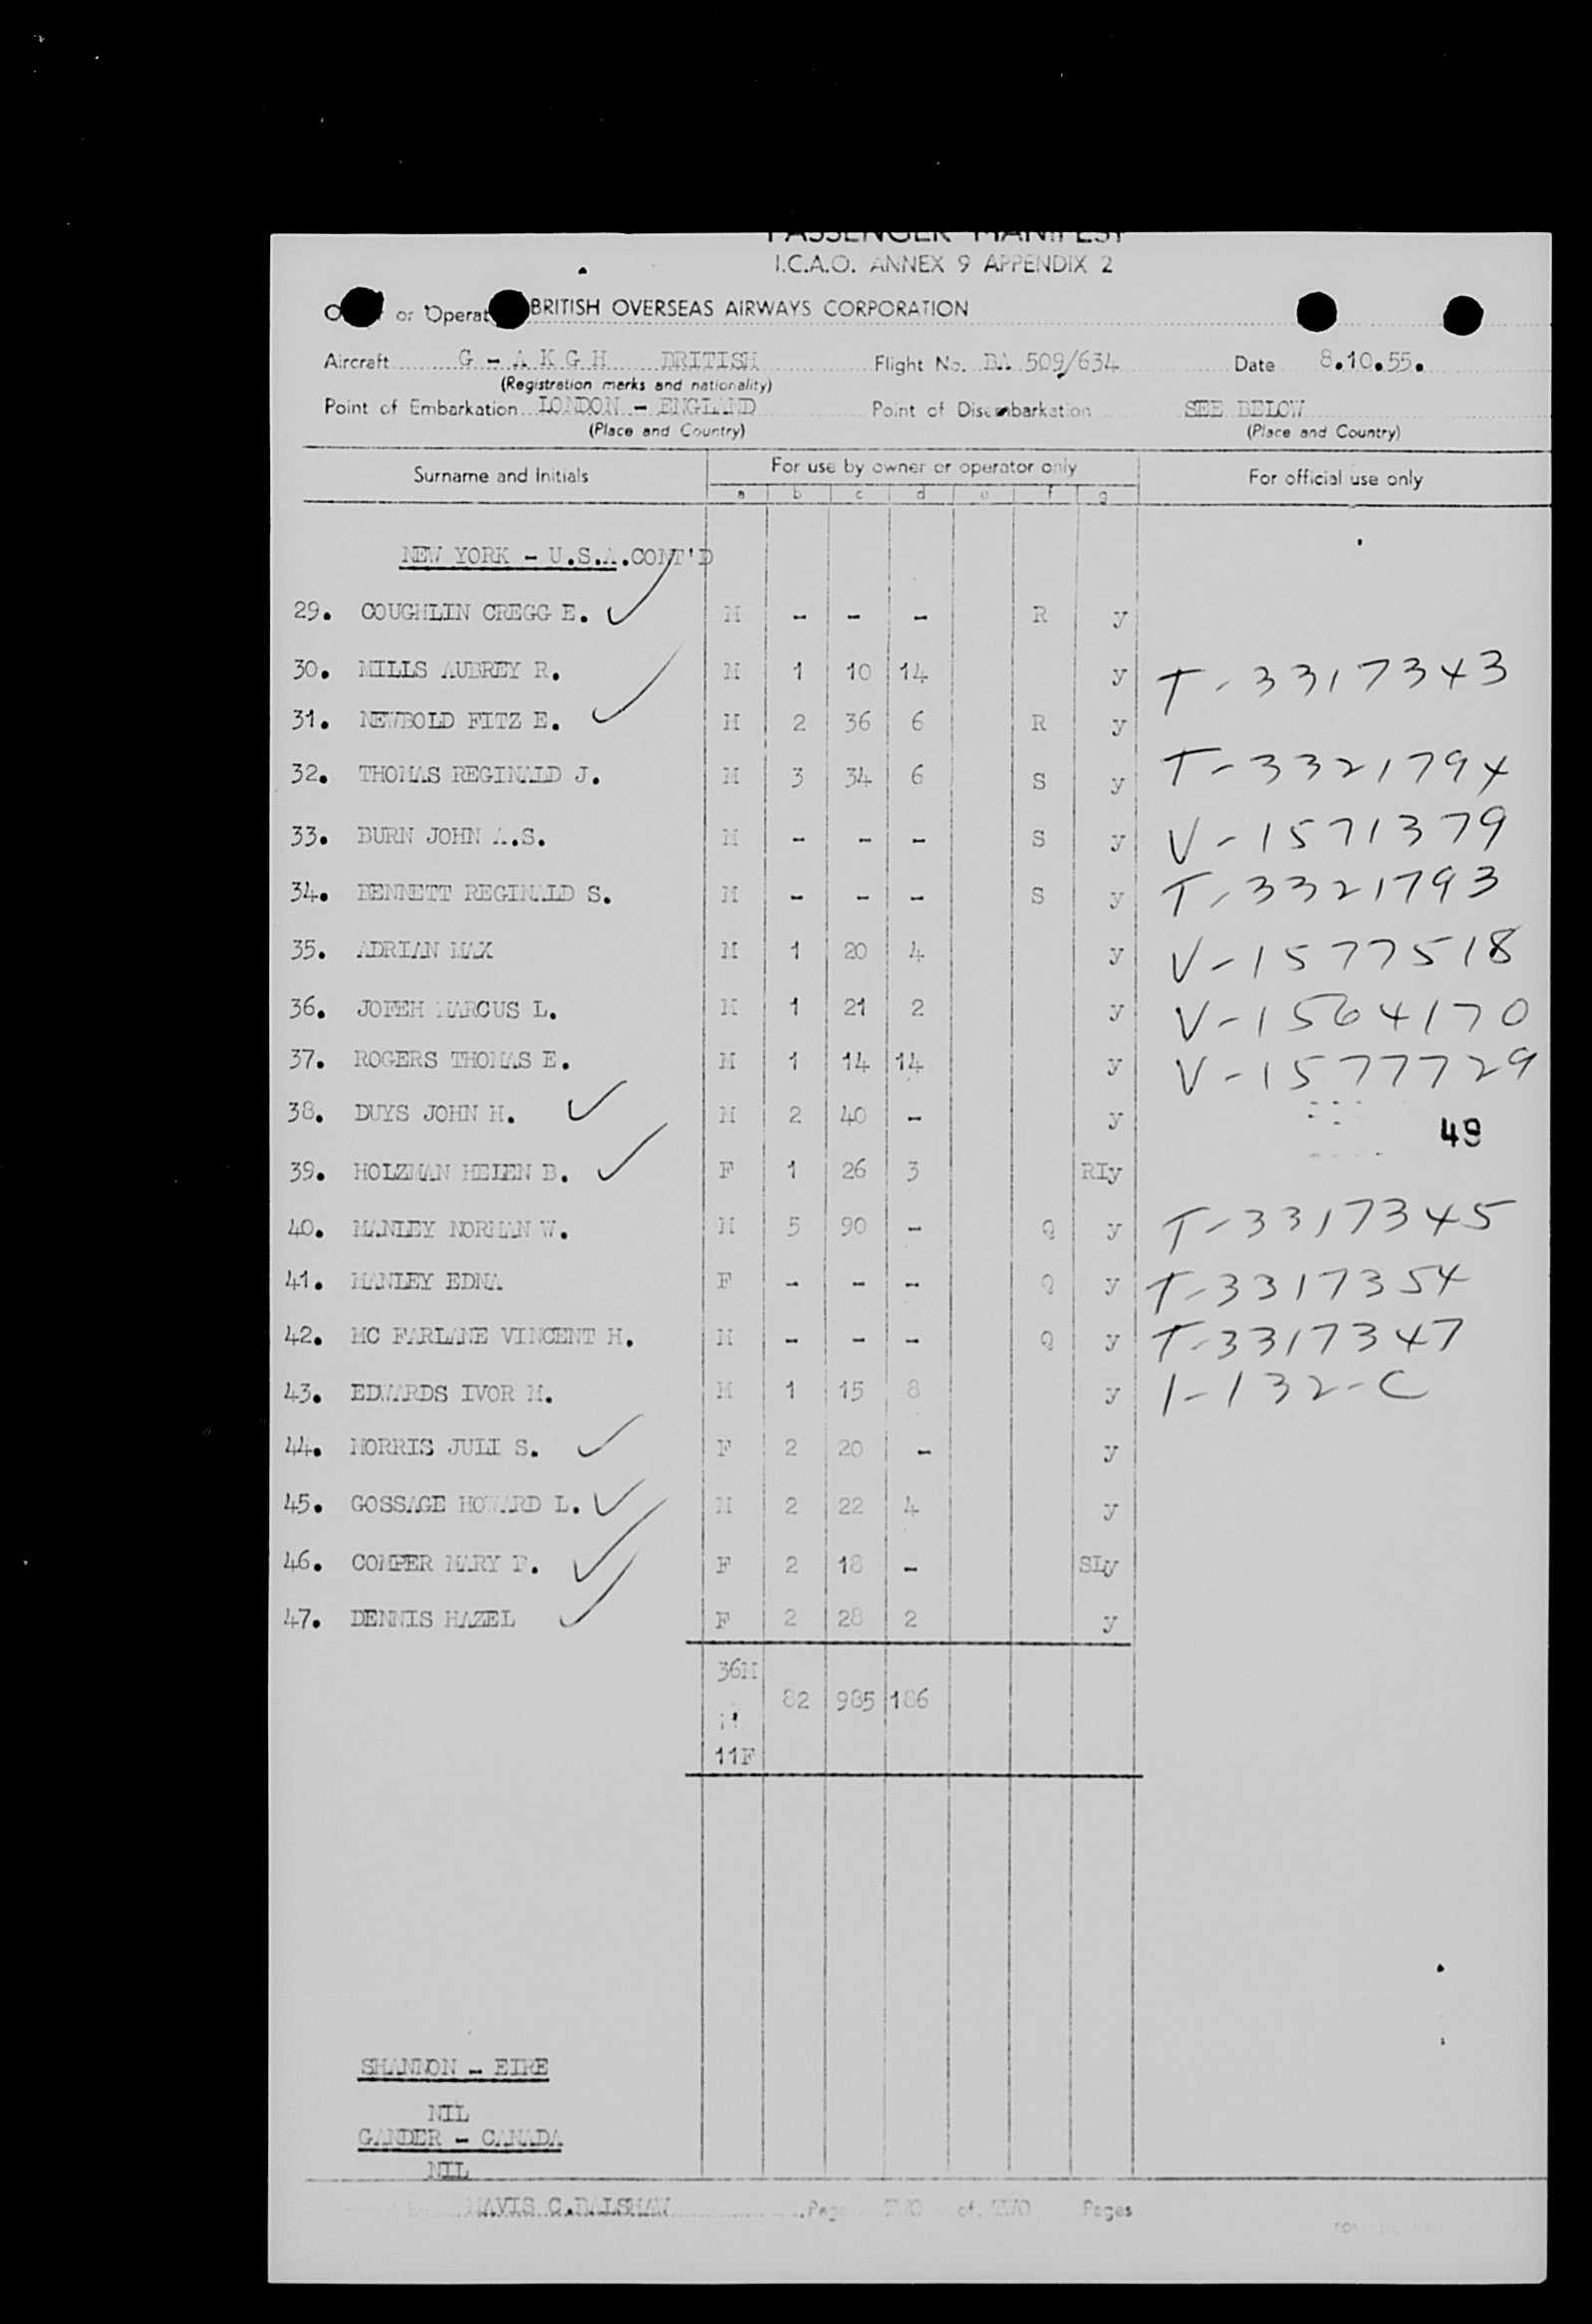 PASSENGER MANIFEST
I.C.A.O. ANNEX 9 APPENDIX 2
or Operat BRITISH OVERSEAS AIRWAYS CORPORATION
Aircraft G - A K G H BRITISH Flight No. BA 509/634 Date 8.10.55.
(Registration marks and nationality)
Point of Embarkation LONDON - ENGLAND Point of Disembarkation SEE BELOW
(Place and Country) (Place and Country)
Surname and Initials For use by owner or operator only For official use only
a b c d e f g
NEW YORK - U.S.A.CONT'D
29. COUGHLIN CREGG E. M - - - R y
30. MILLS AUBREY R. M 1 10 14 y T-3317343
31. NEWBOLD FITZ E. M 2 36 6 R y
32. THOMAS REGINALD J. M 3 34 6 S y T-3321794
33. BURN JOHN A.S. M - - - S y V-1571379
34. BENNETT REGINALD S. M - - - S y T-3321793
35. ADRIAN MAX M 1 20 4 y V-1577518
36. JOFEH MARCUS L. M 1 21 2 y V-1564170
37. ROGERS THOMAS E. M 1 14 14 y V-1577729
38. DUYS JOHN H. M 2 40 - y
49
39. HOLZMAN HELEN B. F 1 26 3 RIy
40. MANLEY NORMAN W. M 5 90 - Q y T-3317345
41. MANLEY EDNA F - - - Q y T-3317354
42. MC FARLANE VINCENT H. M - - - Q y T-3317347
43. EDWARDS IVOR M. M 1 15 8 y 1-132-C
44. MORRIS JULI S. F 2 20 - y
45. GOSSAGE HOWARD L. M 2 22 4 y
46. COMPER MARY F. F 2 18 - SLy
47. DENNIS HAZEL F 2 28 2 y
36M
82 985 186
11F
SHANNON - EIRE
NIL
GANDER - CANADA
NIL
MAVIS C.BALSHAW Page TWO of TWO Pages